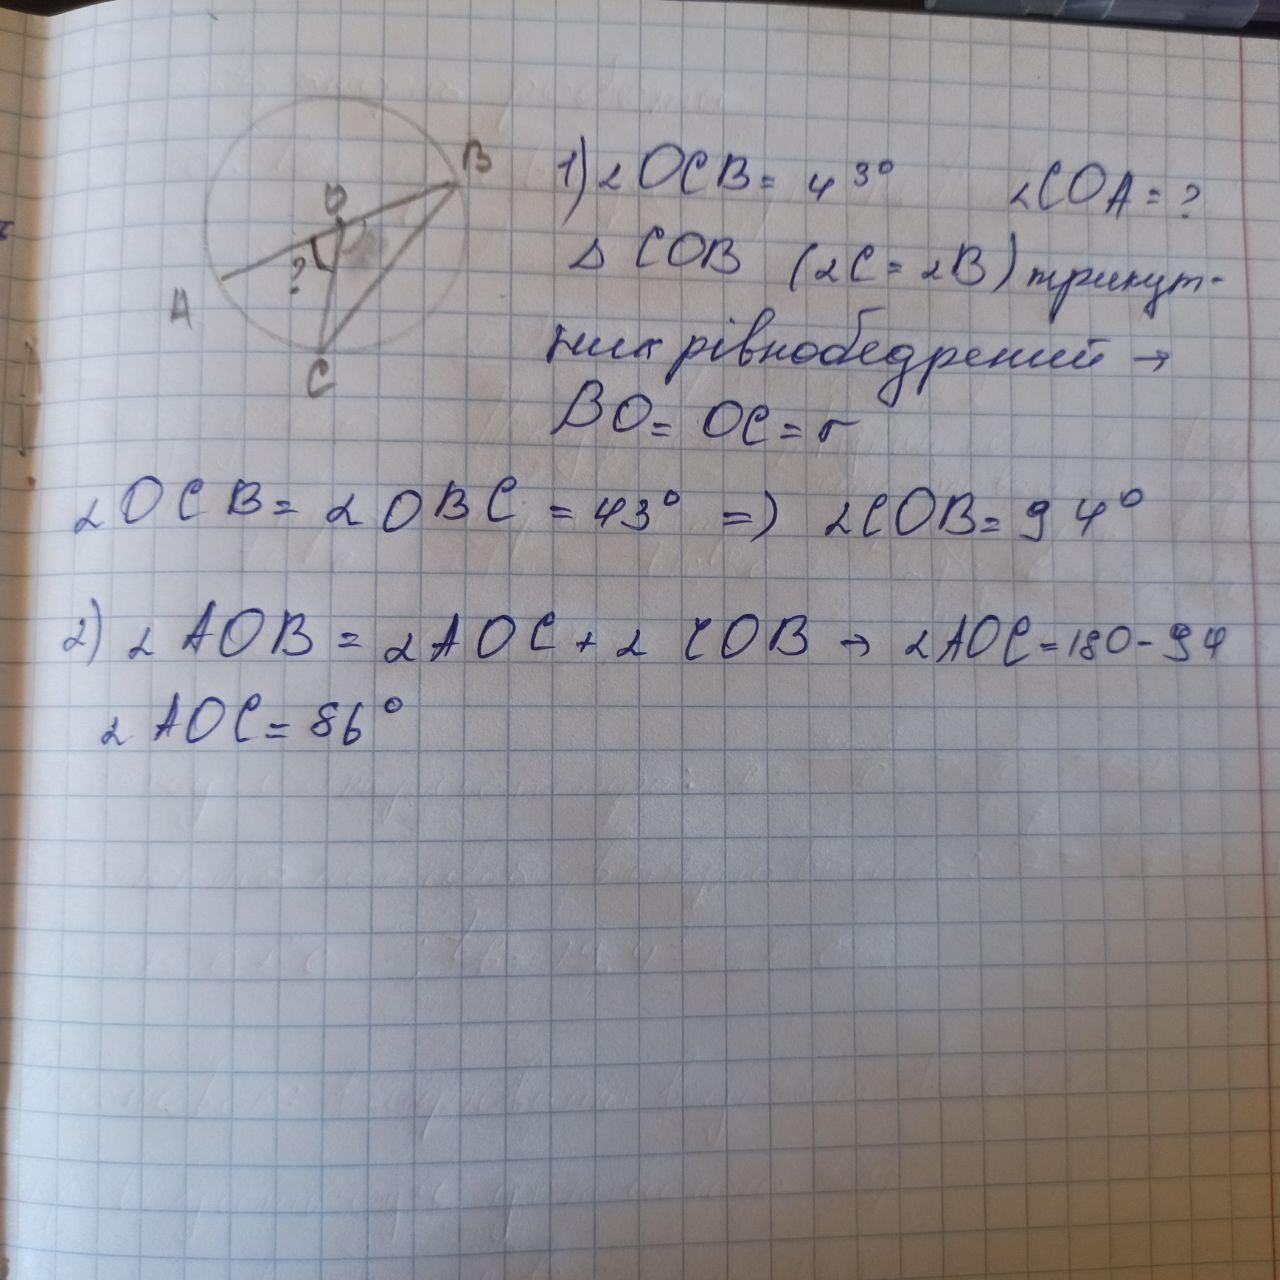 B
O
?
A
C
1) ∠OCB = 43° ∠COA = ?
Δ COB (∠C = ∠B) трикут-
ник рівнобедрений →
BO = OC = r
∠OCB = ∠OBC = 43° => ∠COB = 94°
2) ∠AOB = ∠AOC + ∠COB → ∠AOC = 180 - 94
∠AOC = 86°